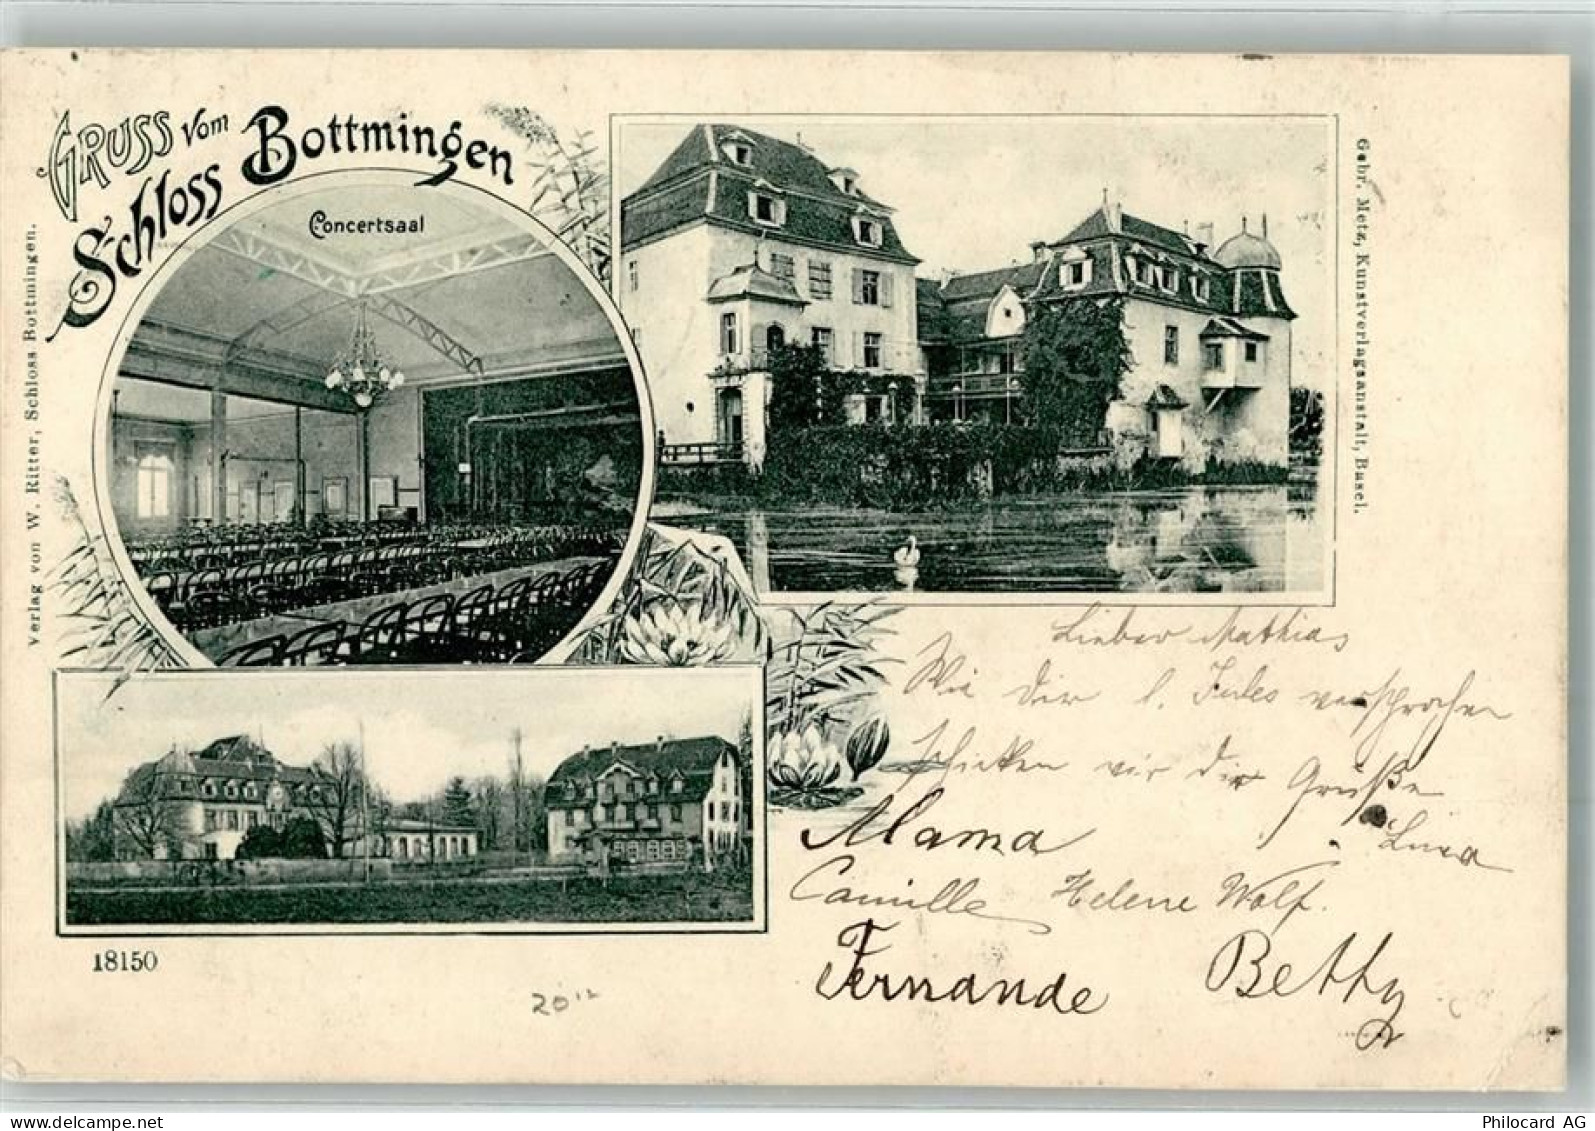 GRUSS vom
Schloss Bottmingen
Concertsaal
Verlag von W. Ritter, Schloss Bottmingen.
Gebr. Metz, Kunstverlagsanstalt, Basel.
Lieber Mathias
Wie Dir l. Jules versprochen
schicken wir Dir Grüße
Lina
Mama
Camille Helene Wolf.
Fernande Betty
18150
20¹²
www.delcampe.net
Philocard AG